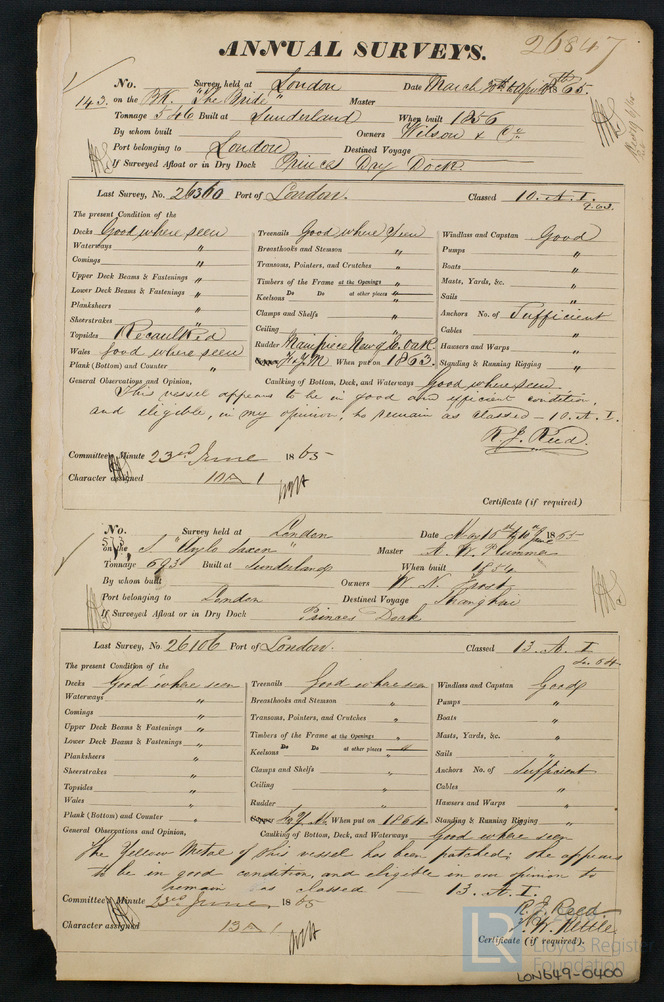 ANNUAL SURVEYS.
26847
No. Survey held at London Date March
143. on the Bk. "The Bride" Master
Tonnage 546 Built at Sunderland When built 1856
By whom built Owners Wilson & Co.
Port belonging to London Destined Voyage
If Surveyed Afloat or in Dry Dock Princes Day Dock.
Last Survey, No. 26360 Port of London. Classed 10. A. I.
2.63.
The present Condition of the
Decks Good where seen Treenails Good where seen Windlass and Capstan Good
Waterways " Breasthooks and Stemson " Pumps "
Comings " Transoms, Pointers, and Crutches " Boats "
Upper Deck Beams & Fastenings " Timbers of the Frame at the Openings " Masts, Yards, &c. "
Lower Deck Beams & Fastenings " Keelsons Do Do at other places " Sails "
Planksheers " Clamps and Shelfs " Anchors No. of Sufficient
Sheerstrakes " Ceiling " Cables "
Topsides Recaulked Rudder Mainpiece New Oak Hawsers and Warps "
Wales Good where seen F & Y M When put on 1863. Standing & Running Rigging "
Plank (Bottom) and Counter "
General Observations and Opinion, Caulking of Bottom, Deck, and Waterways Good where seen
This vessel appears to be in good and efficient condition,
and eligible, in my opinion, to remain as classed - 10. A. I.
R. J. Reed.
Committee's Minute 23rd June 1865
Character assigned 10 A 1
Certificate (if required)
No. Survey held at London Date May 1865
573 on the S. "Saxon" Master A. W. Plummer
Tonnage 693 Built at Sunderland When built 1854
By whom built Owners W. N.
Port belonging to London Destined Voyage Shanghai
If Surveyed Afloat or in Dry Dock Princes Dock
Last Survey, No 26106 Port of London. Classed 13. A. I.
The present Condition of the
Decks Good where seen Treenails Good where seen Windlass and Capstan Good
Waterways " Breasthooks and Stemson " Pumps "
Comings " Transoms, Pointers, and Crutches " Boats "
Upper Deck Beams & Fastenings " Timbers of the Frame at the Openings " Masts, Yards, &c. "
Lower Deck Beams & Fastenings " Keelsons Do Do at other places " Sails "
Planksheers " Clamps and Shelfs " Anchors No. of Sufficient
Sheerstrakes " Ceiling " Cables "
Topsides " Rudder " Hawsers and Warps "
Wales " When put on 1864. Standing & Running Rigging "
Plank (Bottom) and Counter "
General Observations and Opinion, Caulking of Bottom, Deck, and Waterways Good where seen
The Yellow Metal of this vessel has been patched; she appears
to be in good condition, and eligible in our opinion to
remain as classed - 13. A. I.
R. J. Reed
Committee's Minute 23rd June 1865
Character assigned 13 A 1
Certificate (if required).
LR Lloyd's Register
Foundation
LON649-0400